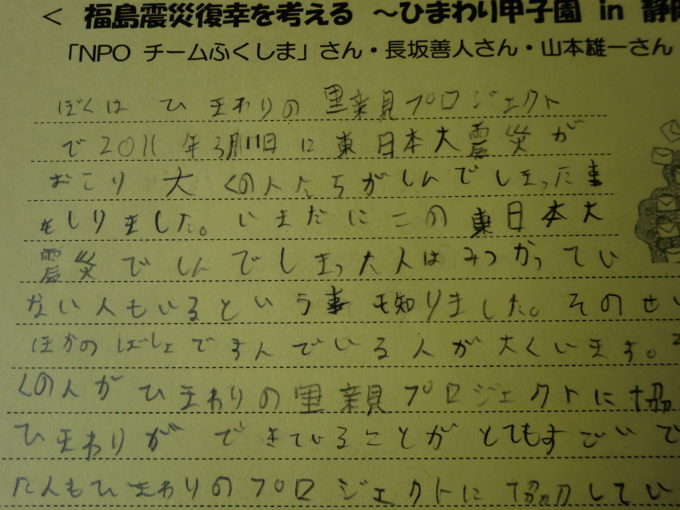 < 福島震災復幸を考える ～ひまわり甲子園 in 静岡
「NPO チームふくしま」さん・長坂善人さん・山本雄一さん
ぼくは ひまわりの里親プロジェクト
で2011年3月11日に東日本大震災が
おこり 大くの人たちがしんでしまった事
をしりました。いまだにこの東日本大
震災でしんでしまった人はみつかってい
ない人もいるという事も知りました。そのせい
ほかのばしょですんでいる人が大くいます。
くの人がひまわりの里親プロジェクトに協
ひまわりができていることがとてもすごいで
た人もひまわりのプロジェクトに協力してい